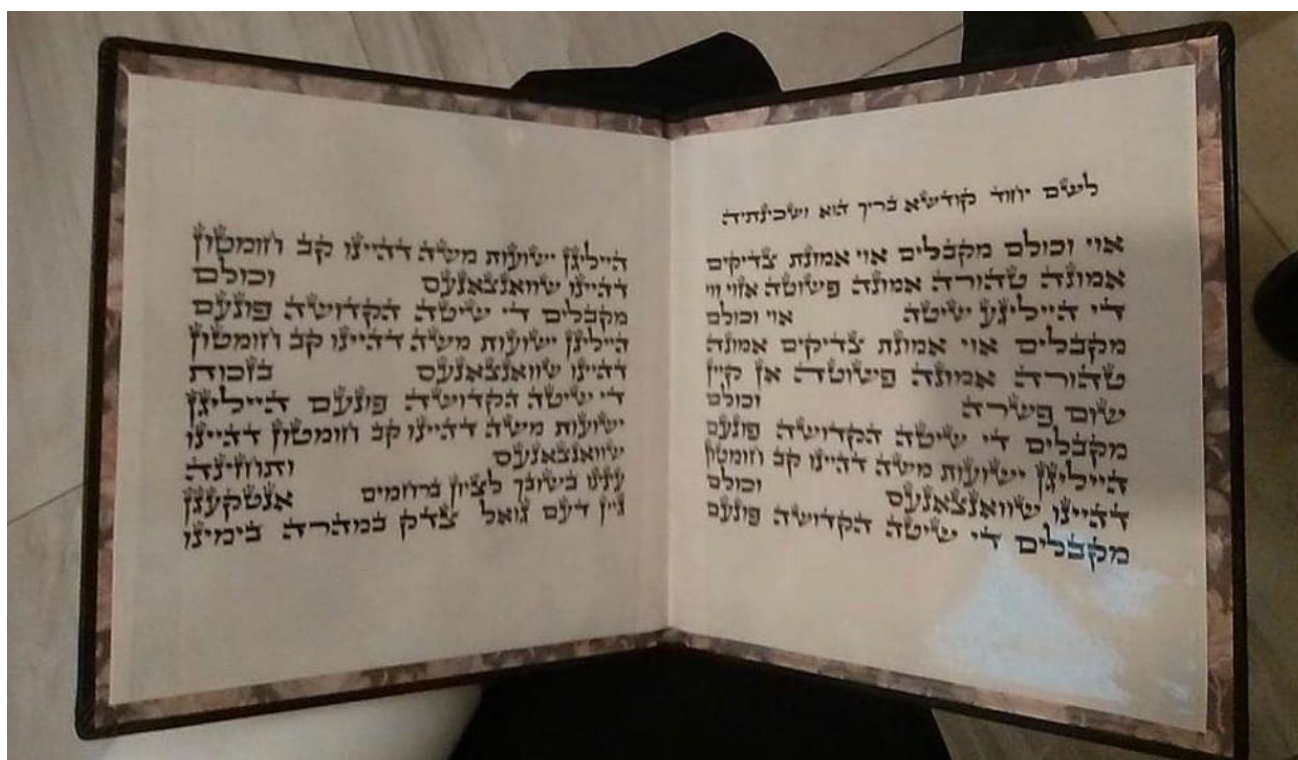 לשם יחוד קודשא בריך הוא ושכינתיה
אוי וכולם מקבלים אוי אמונת צדיקים
אמונה טהורה אמונה פשוטה אזוי ווי
די הייליגע שיטה אוי וכולם
מקבלים אוי אמונת צדיקים אמונה
טהורה אמונה פשוטה אן קיין
שום פשרה וכולם
מקבלים די שיטה הקדושה פונעם
הייליגן ישועות משה דהיינו קב וחומטון
דהיינו שוואנצאנעס וכולם
מקבלים די שיטה הקדושה פונעם
הייליגן ישועות משה דהיינו קב וחומטון
דהיינו שוואנצאנעס וכולם
מקבלים די שיטה הקדושה פונעם
הייליגן ישועות משה דהיינו קב וחומטון
דהיינו שוואנצאנעס בזכות
די שיטה הקדושה פונעם הייליגן
ישועות משה דהיינו קב וחומטון דהיינו
שוואנצאנעס ותחזינה
עינינו בשובך לציון ברחמים אנטקעגן
גיין דעם גואל צדק במהרה בימינו